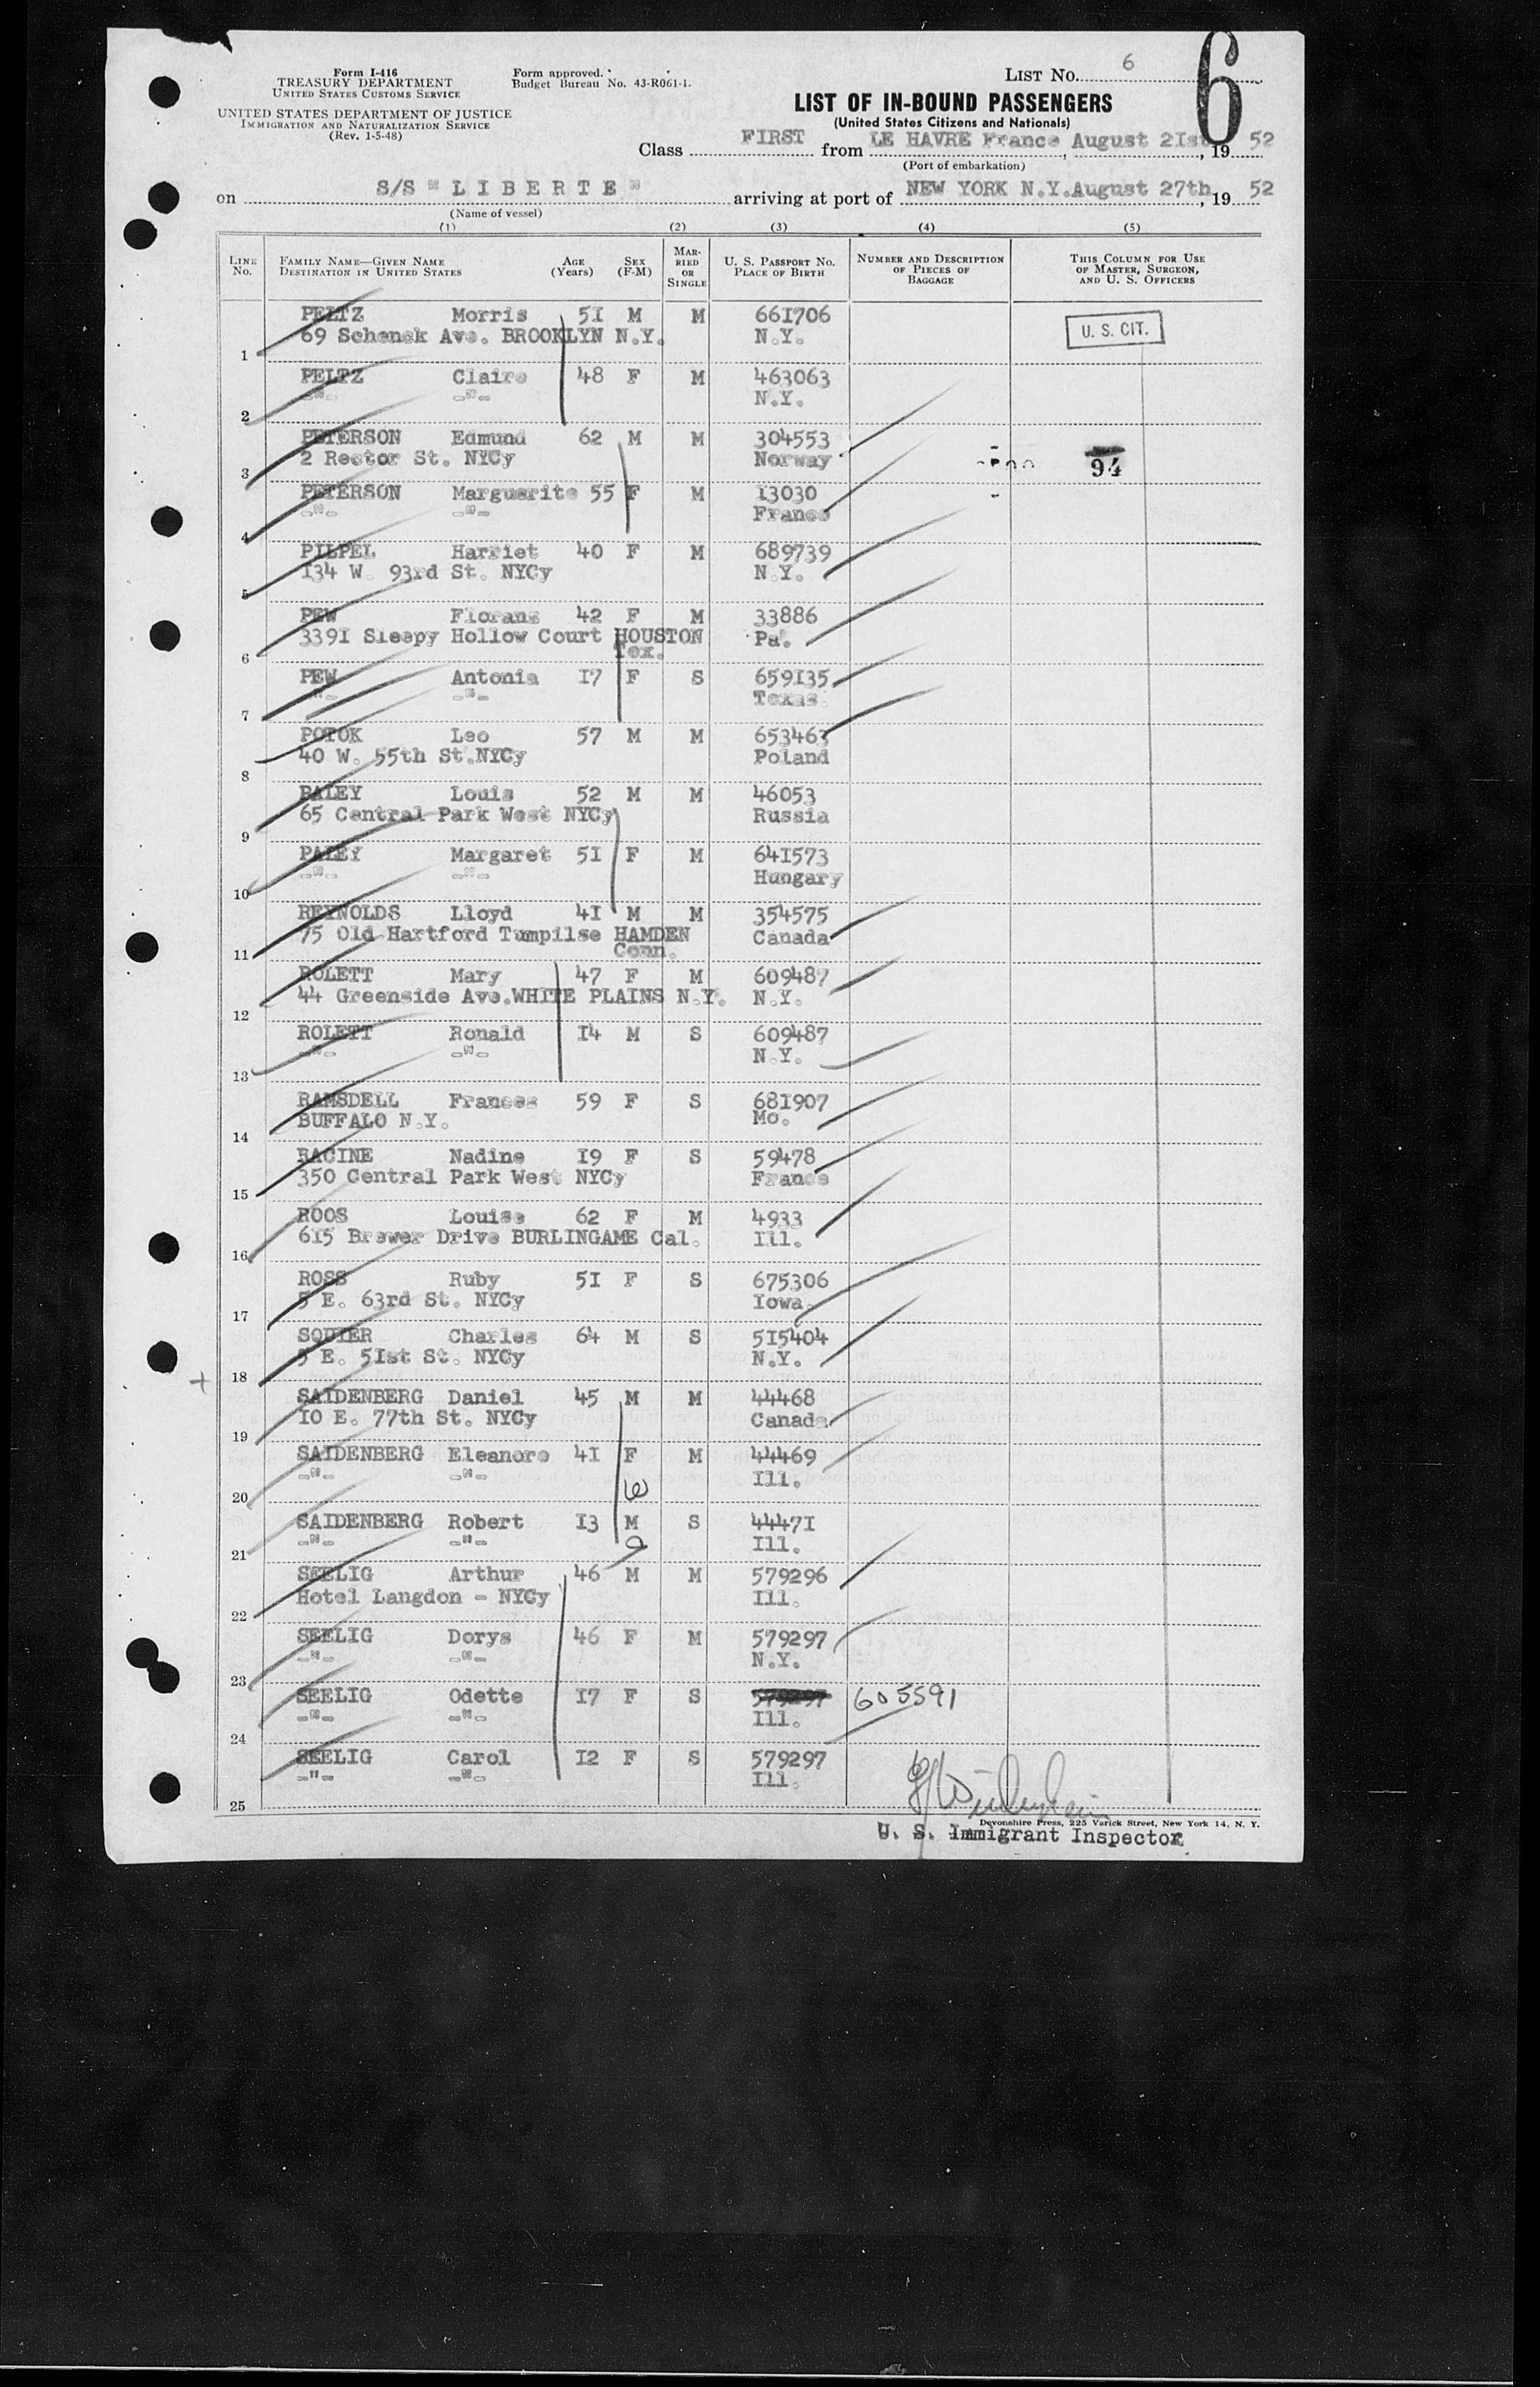 Form I-416
TREASURY DEPARTMENT
UNITED STATES CUSTOMS SERVICE
UNITED STATES DEPARTMENT OF JUSTICE
IMMIGRATION AND NATURALIZATION SERVICE
(Rev. 1-5-48)
Form approved.
Budget Bureau No. 43-R061-1.
LIST No. 6
6
LIST OF IN-BOUND PASSENGERS
(United States Citizens and Nationals)
Class FIRST from LE HAVRE France August 21st, 19 52
(Port of embarkation)
on S/S "LIBERTE" arriving at port of NEW YORK N.Y. August 27th, 19 52
(Name of vessel)
(1) (2) (3) (4) (5)
LINE No. FAMILY NAME—GIVEN NAME DESTINATION IN UNITED STATES AGE (Years) SEX (F-M) MARRIED OR SINGLE U. S. PASSPORT NO. PLACE OF BIRTH NUMBER AND DESCRIPTION OF PIECES OF BAGGAGE THIS COLUMN FOR USE OF MASTER, SURGEON, AND U. S. OFFICERS
PELTZ Morris 51 M M 661706
69 Schenek Ave. BROOKLYN N.Y. N.Y. U. S. CIT.
1
PELTZ Claire 48 F M 463063
-"- -"- N.Y.
2
PETERSON Edmund 62 M M 304553
2 Rector St. NYCy Norway 94
3
PETERSON Marguerite 55 F M 13030
-"- -"- France
4
PILPEL Harriet 40 F M 689739
134 W. 93rd St. NYCy N.Y.
5
PEW Florans 42 F M 33886
3391 Sleepy Hollow Court HOUSTON Pa.
Tex.
6
PEW Antonia 17 F S 659135
-"- -"- Texas.
7
POTOK Leo 57 M M 653467
40 W. 55th St.NYCy Poland
8
PALEY Louis 52 M M 46053
65 Central Park West NYCy Russia
9
PALEY Margaret 51 F M 641573
-"- -"- Hungary
10
REYNOLDS Lloyd 41 M M 354575
75 Old Hartford Tumpilse HAMDEN Canada
Conn.
11
ROLETT Mary 47 F M 609487
44 Greenside Ave.WHITE PLAINS N.Y. N.Y.
12
ROLETT Ronald 14 M S 609487
-"- -"- N.Y.
13
RAMSDELL Frances 59 F S 681907
BUFFALO N.Y. Mo.
14
RACINE Nadine 19 F S 59478
350 Central Park West NYCy France
15
ROOS Louise 62 F M 4933
615 Brewer Drive BURLINGAME Cal. Ill.
16
ROSS Ruby 51 F S 675306
5 E. 63rd St. NYCy Iowa.
17
SQUIER Charles 64 M S 515404
5 E. 51st St. NYCy N.Y.
18
SAIDENBERG Daniel 45 M M 44468
10 E. 77th St. NYCy Canada
19
SAIDENBERG Eleanore 41 F M 44469
-"- -"- Ill.
20
SAIDENBERG Robert 13 M S 44471
-"- -"- Ill.
21
SEELIG Arthur 46 M M 579296
Hotel Langdon - NYCy Ill.
22
SEELIG Dorys 46 F M 579297
-"- -"- N.Y.
23
SEELIG Odette 17 F S 579297 605591
-"- -"- Ill.
24
SEELIG Carol 12 F S 579297
-"- -"- Ill.
25
Devonshire Press, 225 Varick Street, New York 14, N. Y.
U. S. Immigrant Inspector